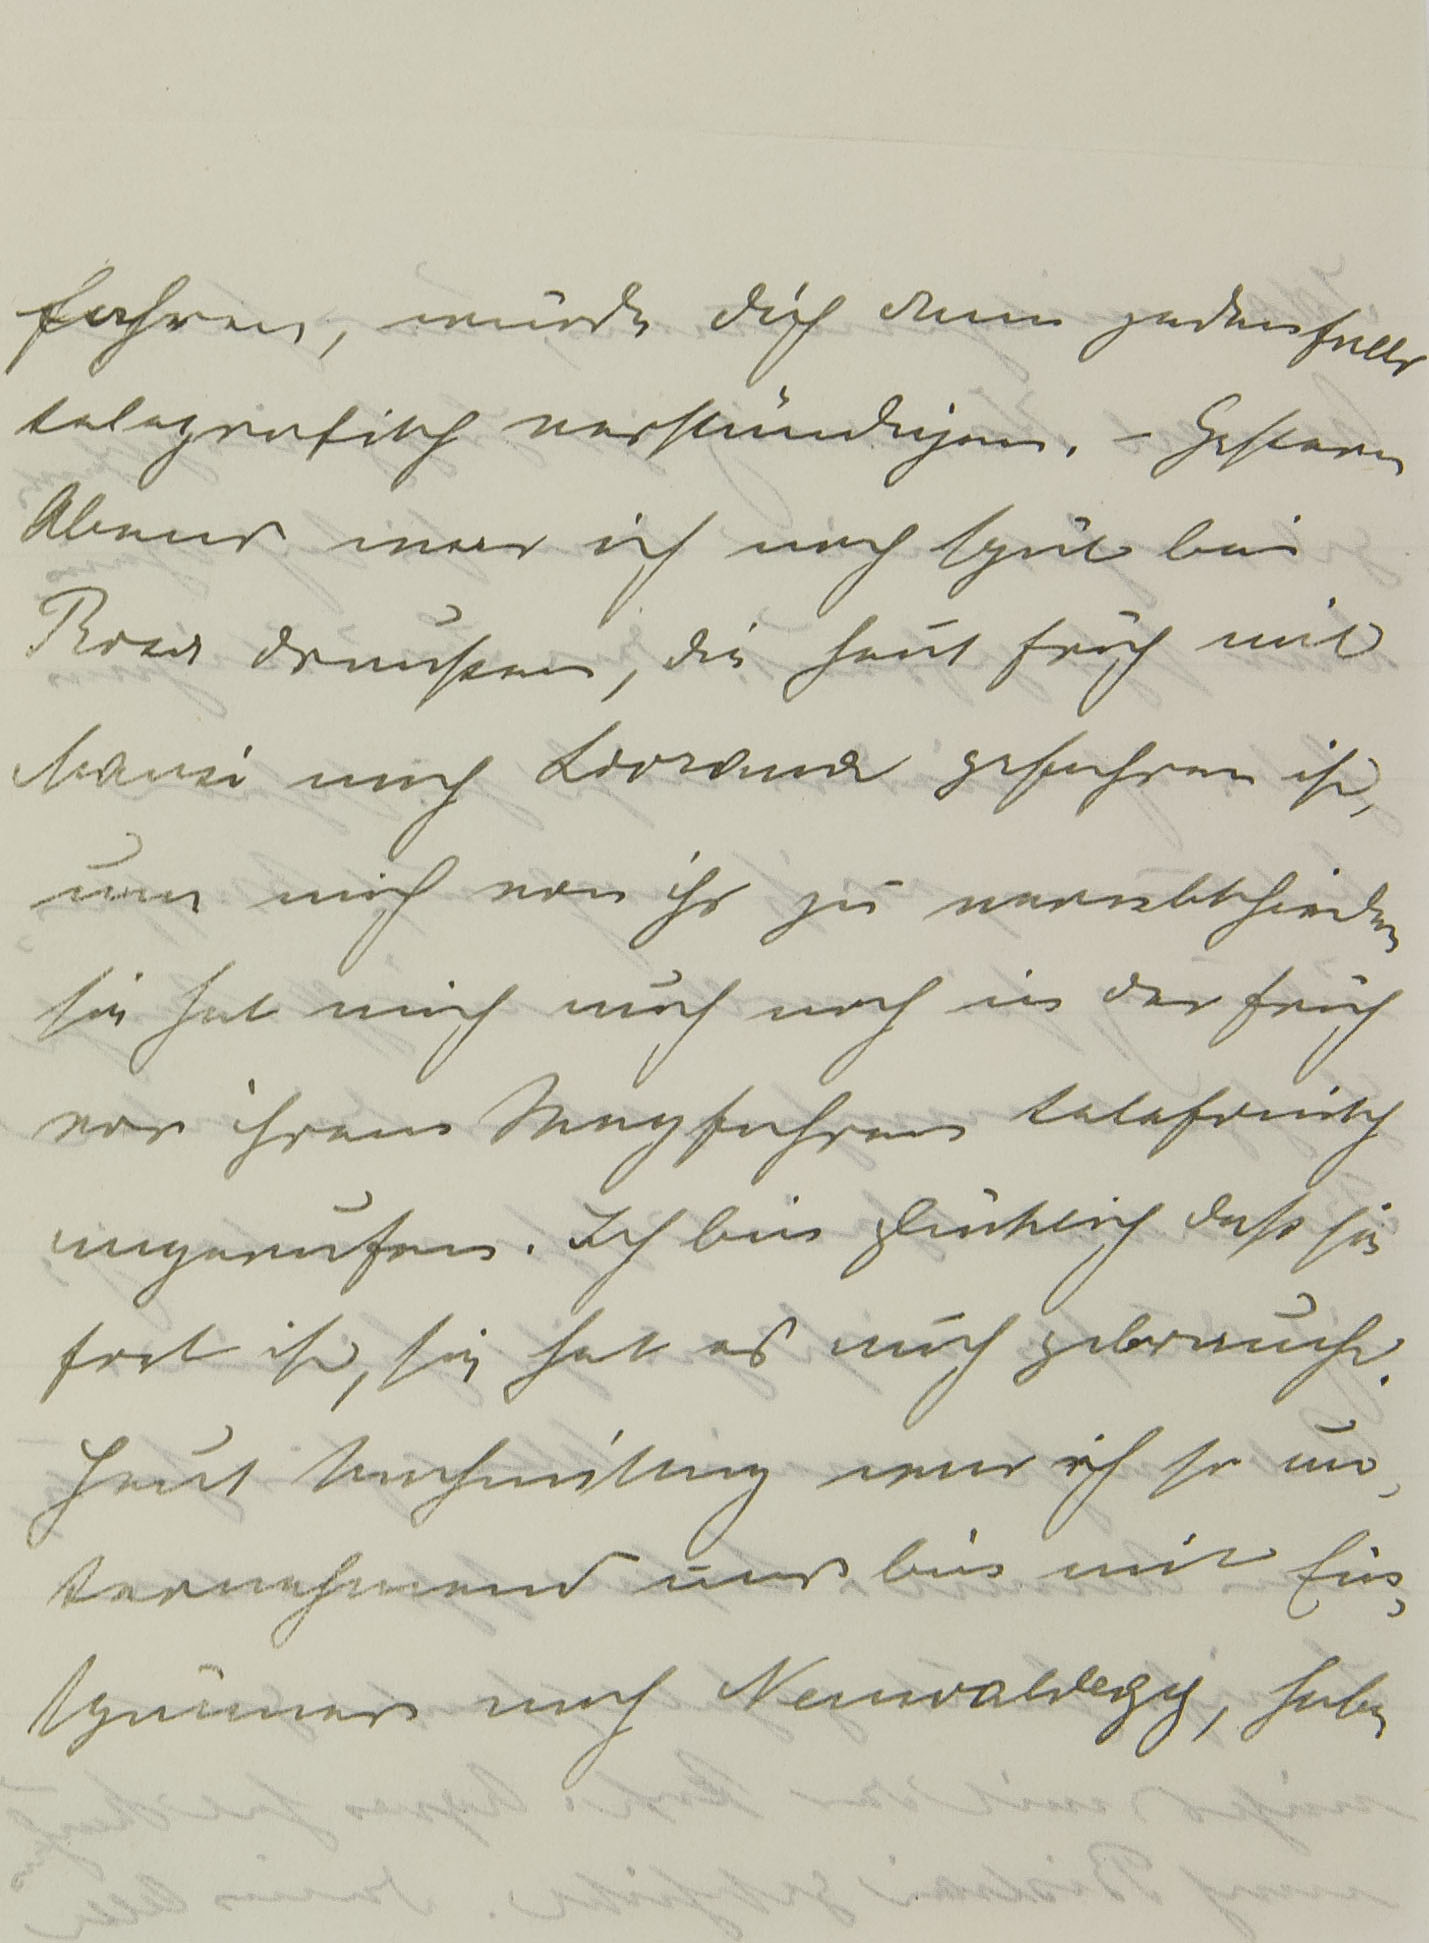 fahren, würde dich dann jedenfalls
telegrafisch verständigen. – Gestern
Abend war ich noch spät bei
Rosa draußen, die heut früh mit
Mausi nach Lovrana gefahren ist,
um mich von ihr zu verabschieden
sie hat mich auch noch in der früh
vor ihrem Wegfahren telefonisch
angerufen. Ich bin glücklich daß sie
fort ist, sie hat es auch gebraucht.
Heut Nachmittag war ich so un-
ternehmend und bin mit Ein-
spänner nach Neuwaldegg, habe